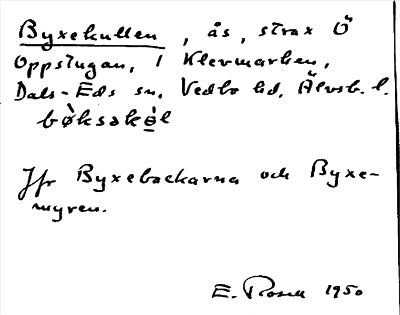 Byxekullen, ås, strax Ö
Oppstugan, i Klevmarken,
Dals-Eds sn, Vedbo hd, Älvsb. l.
bø̀ksəkø̠̀l
Jfr Byxebackarna och Byxe-
myren.
E. Rosell 1950